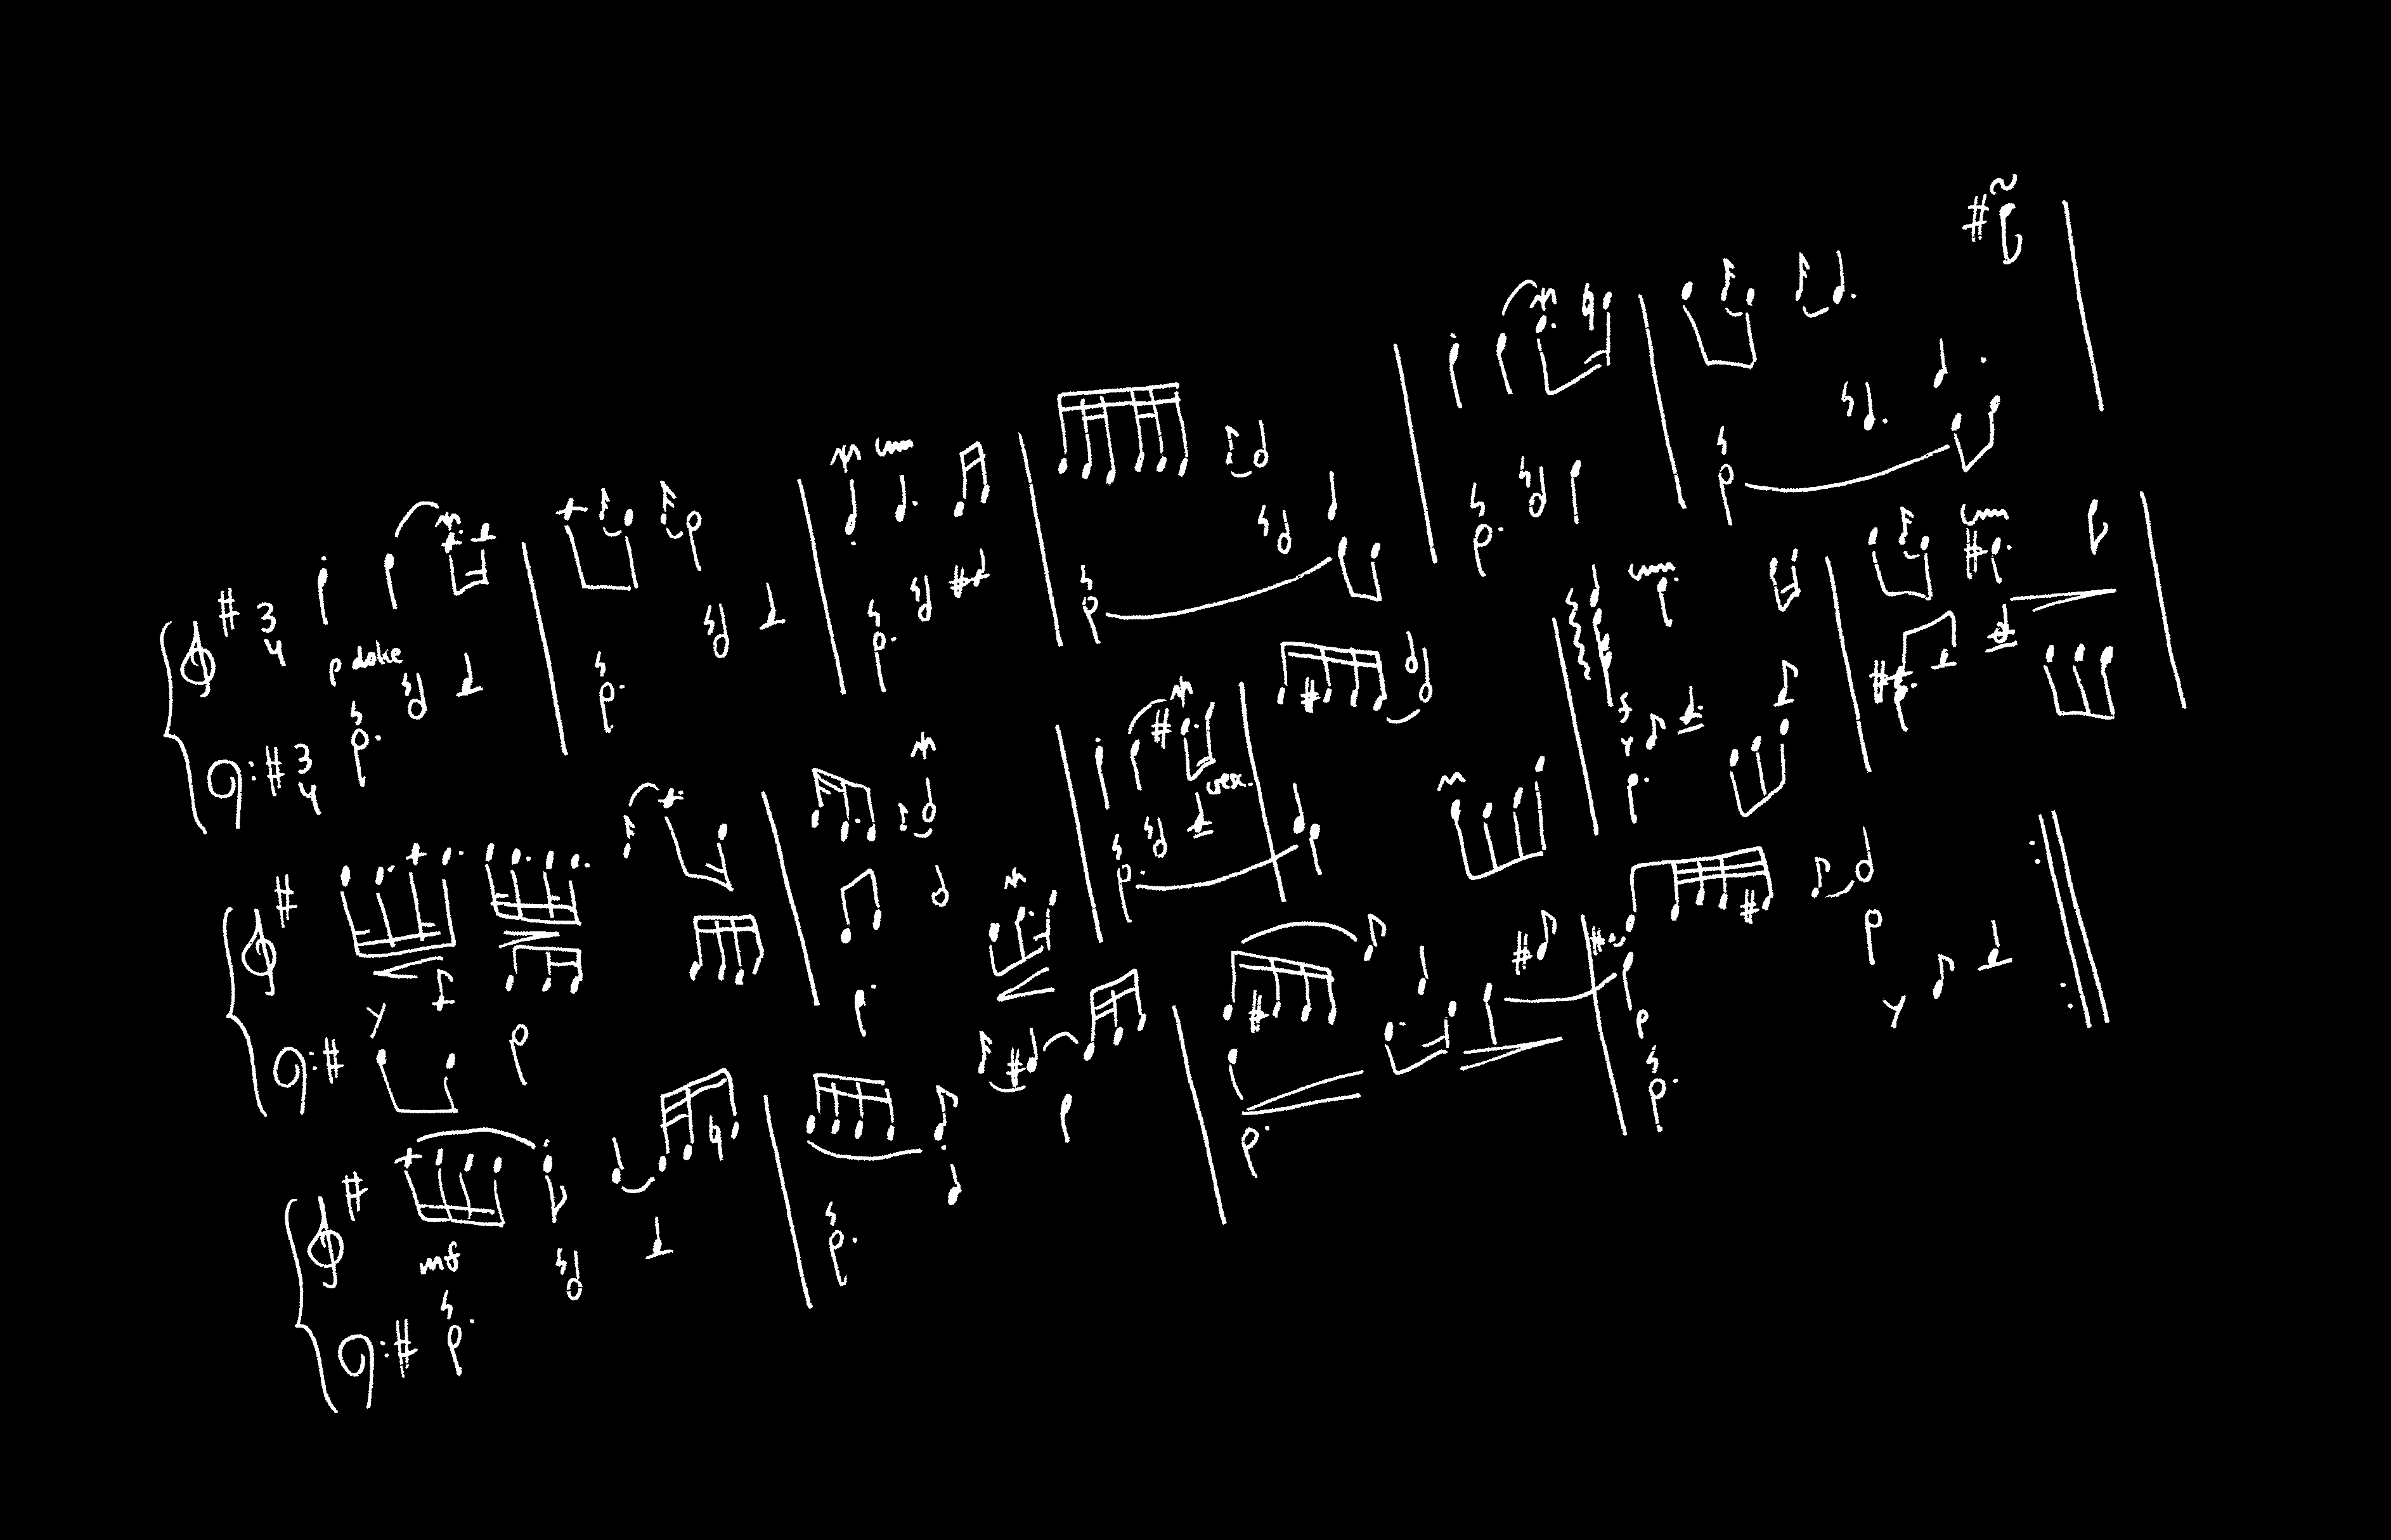 3 4
p dolce
3 4
cresc.
f
mf
p